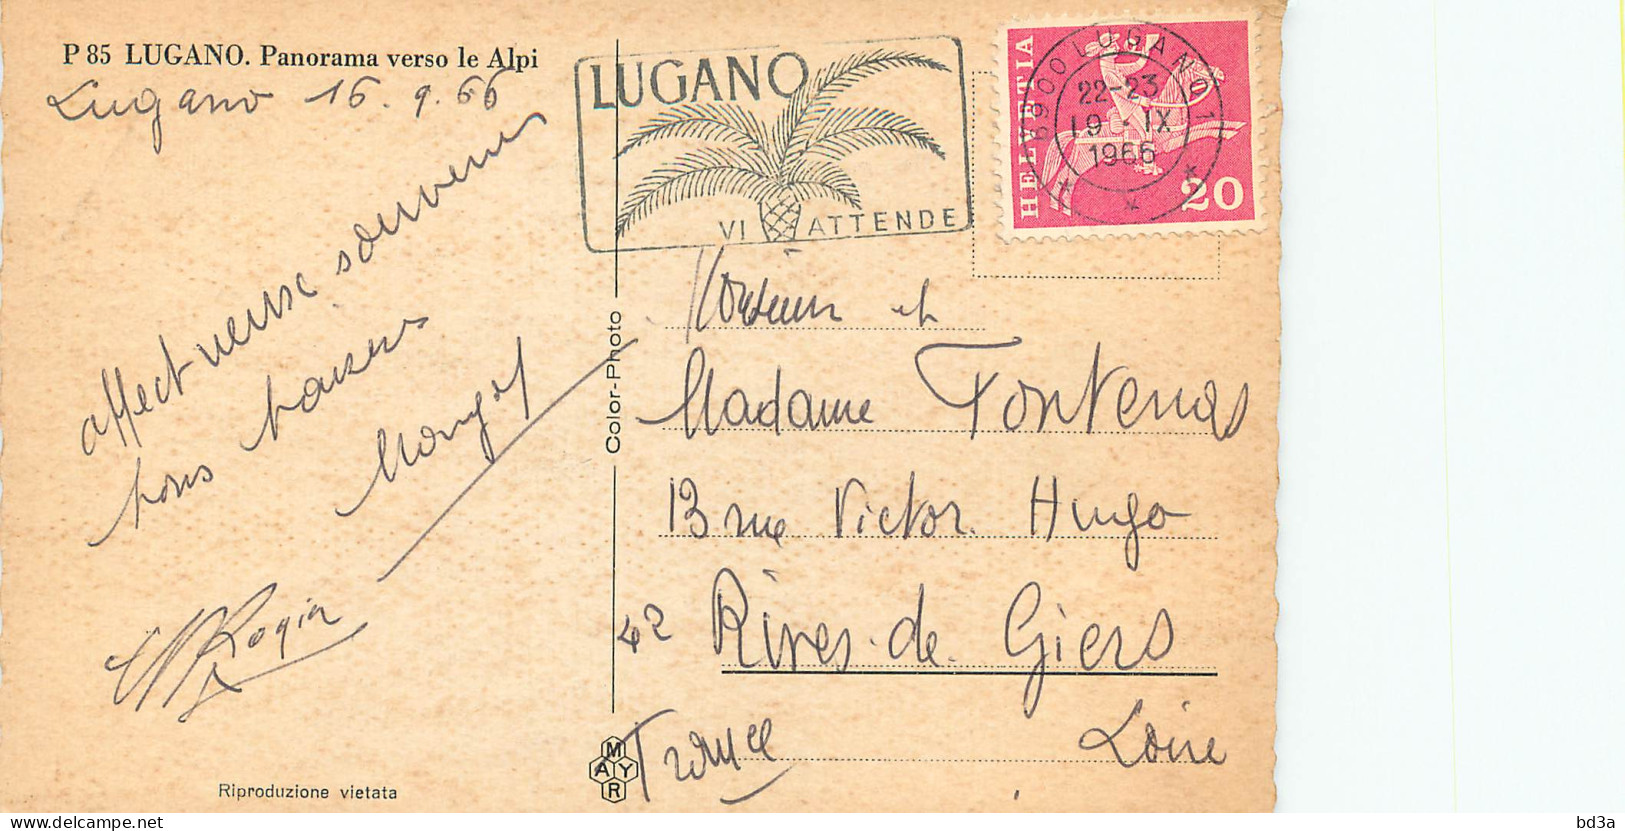 P 85 LUGANO. Panorama verso le Alpi
Lugano 16.9.66
affectueuse souvenirs
bons baisers
LUGANO
VI ATTENDE
HELVETIA
20
6900 LUGANO 1
22-23
19-IX
1966
Color-Photo
Monsieur et
Madame Fontenas
13 rue Victor Hugo
42 Rives-de Giers
Loire
France
MAYR
Riproduzione vietata
delcampe.net
bd3a